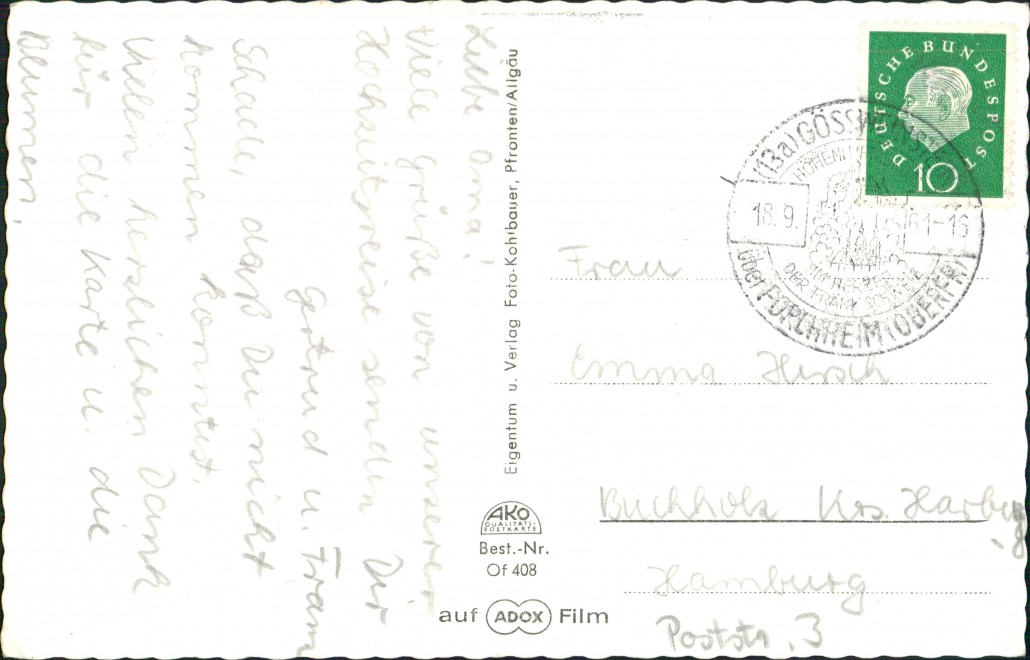 Liebe Oma!
Viele Grüße von unserer
Hochzeitsreise senden Dir
Gertrud u. Franz
Schade, daß Du nicht
kommen konntest.
Vielen herzlichen Dank
für die Karte u. die
Blumen.
Eigentum u. Verlag Foto-Kohlbauer, Pfronten/Allgäu
AKO
QUALITÄTS-
POSTKARTE
Best.-Nr.
Of 408
auf ADOX Film
DEUTSCHE BUNDESPOST
10
(13a) GÖSSWEINSTEIN
18.9. 61-16
über FORCHHEIM (OBERFR)
DER FRÄNK. SCHWEIZ
Frau
Emma Hirsch
Buchholz Krs. Harburg
Hamburg
Poststr. 3